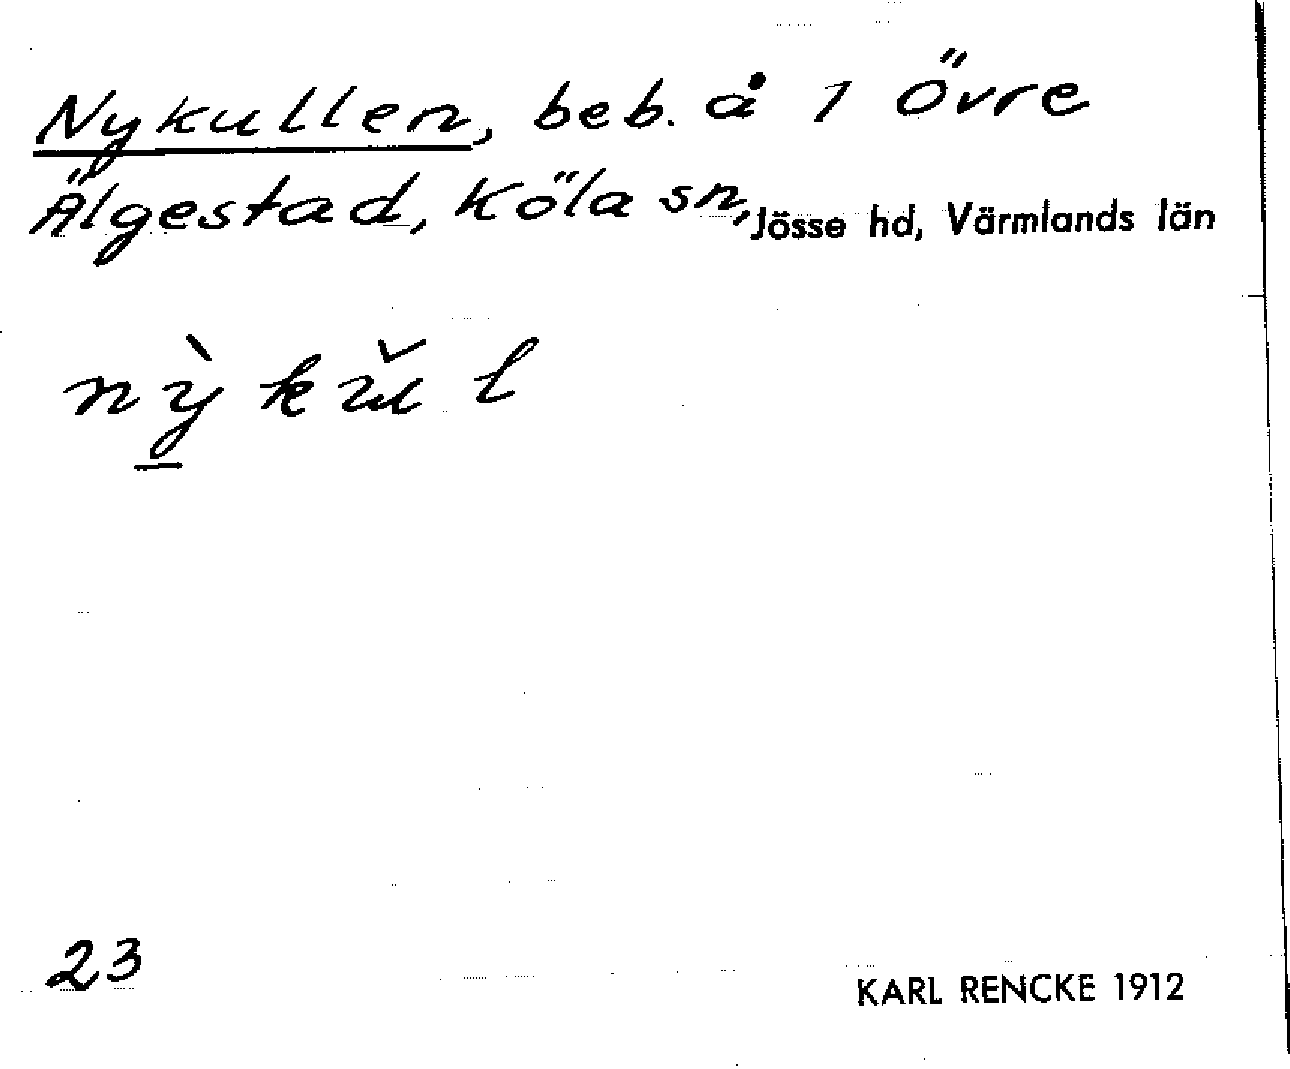 Nykullen, beb. å 1 Övre
Älgestad, Köla sn, Jösse hd, Värmlands län
nỳkŭl
23
KARL RENCKE 1912